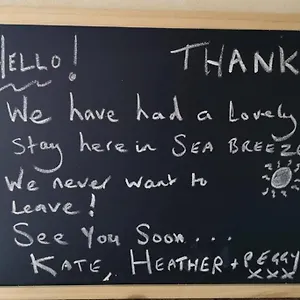 HELLO! THANK
We have had a Lovely
Stay here in SEA BREEZE
We never want to
Leave!
See You Soon....
KATE, HEATHER + PEGGY
XXX